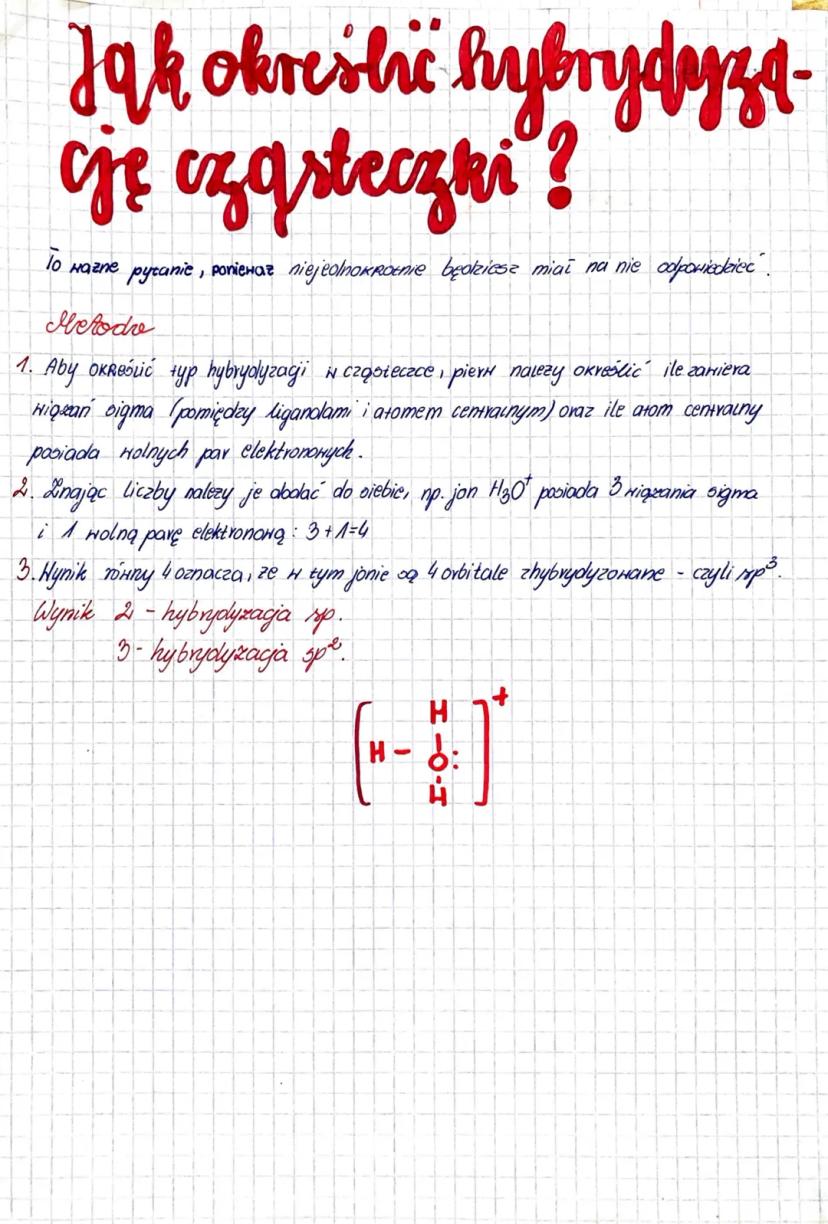 Jak określić hybrydyza-
cję cząsteczki?
To ważne pytanie, ponieważ niejednokrotnie będziesz miał na nie odpowiedzieć.
Metoda
1. Aby określić typ hybrydyzacji w cząsteczce, pierw należy określić ile zawiera
wiązań sigma (pomiędzy ligandami i atomem centralnym) oraz ile atom centralny
posiada wolnych par elektronowych.
2. Znając liczby należy je dodać do siebie, np. jon H₃O⁺ posiada 3 wiązania sigma
i 1 wolną parę elektronową: 3+1=4
3. Wynik równy 4 oznacza, że w tym jonie są 4 orbitale zhybrydyzowane - czyli sp³.
Wynik 2 - hybrydyzacja sp.
3 - hybrydyzacja sp².
H +
H - O:
H